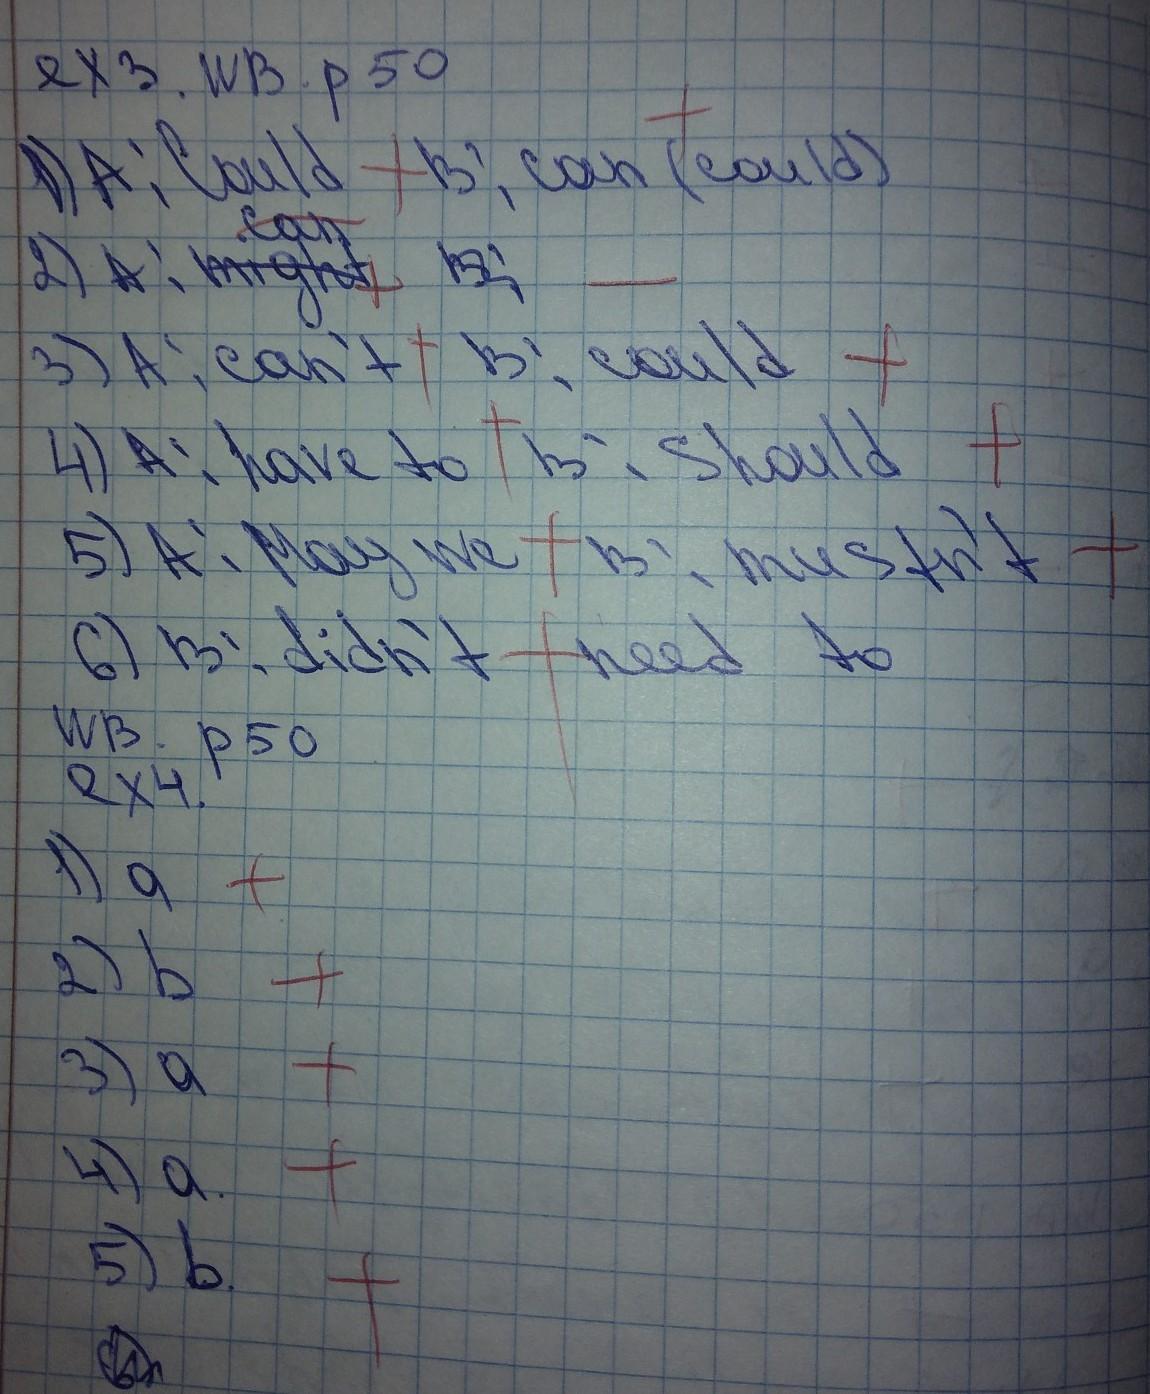 ex3. WB. p 50
1) A: Could + B: can (could) +
can
2) A: might + B: —
3) A: can't + B: could +
4) A: have to + B: should +
5) A: May we + B: mustn't +
6) B: didn't + need to
WB. p50
ex4.
1) a +
2) b +
3) a +
4) a. +
5) b. +